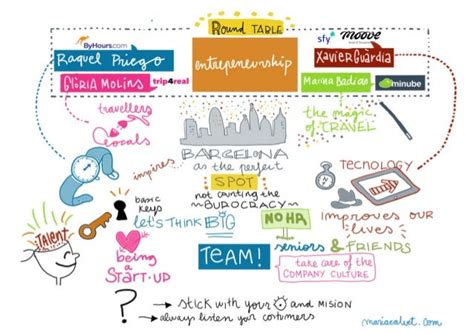 Round TABLE
ByHours.com
Raquel Priego
GLòRIA MOLINS
trip4real
entrepeneurship
sfy
moove
XAVIER GUARDIA
Marina Badian
minube
travellers
Locals
the magic
of TRAVEL
BARCELONA
as the perfect
SPOT
not counting the
BUROCRACY
inspires
TECNOLOGY
basic
keys
let's THINK BIG
NO HR
improves our
lives
seniors & FRIENDS
TALENT
being
a
START-UP
TEAM!
take care of the
COMPANY CULTURE
?
stick with your
and MISION
always listen your costumers
mariacalvet.com